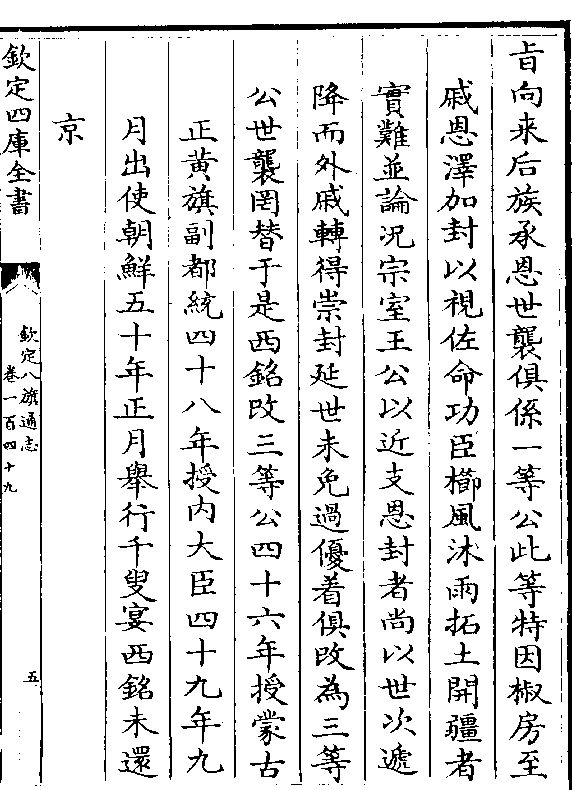 旨向来后族承恩世襲俱係一等公此等特因椒房至
戚恩澤加封以視佐命功臣櫛風沐雨拓土開疆者
實難並論況宗室王公以近支恩封者尚以世次遞
降而外戚轉得崇封延世未免過優着俱改為三等
公世襲罔替于是西銘改三等公四十六年授蒙古
正黃旗副都統四十八年授内大臣四十九年九
月出使朝鮮五十年正月舉行千叟宴西銘未還
京
欽定四庫全書
欽定八旗通志
卷一百四十九
五